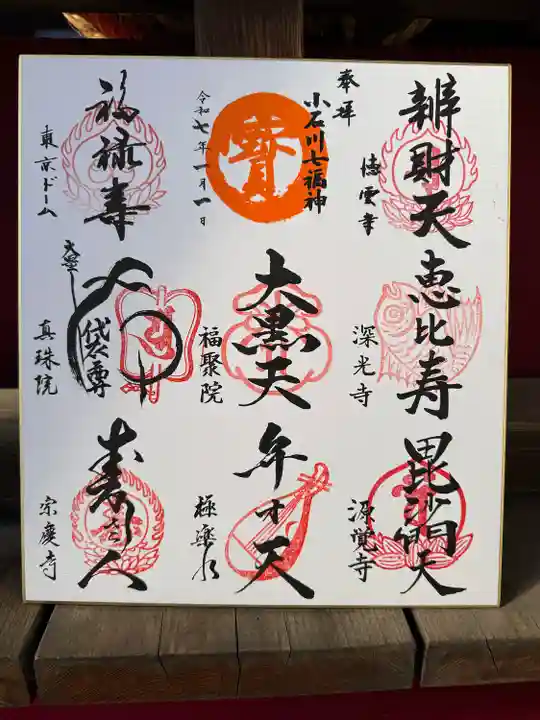 辨財天
徳雲寺
恵比寿
深光寺
毘沙門天
源覚寺
奉拝
小石川七福神
寳
令和七年一月一日
大黒天
福聚院
弁才天
極楽水
福禄寿
東京ドーム
布袋尊
真珠院
寿老人
宗慶寺